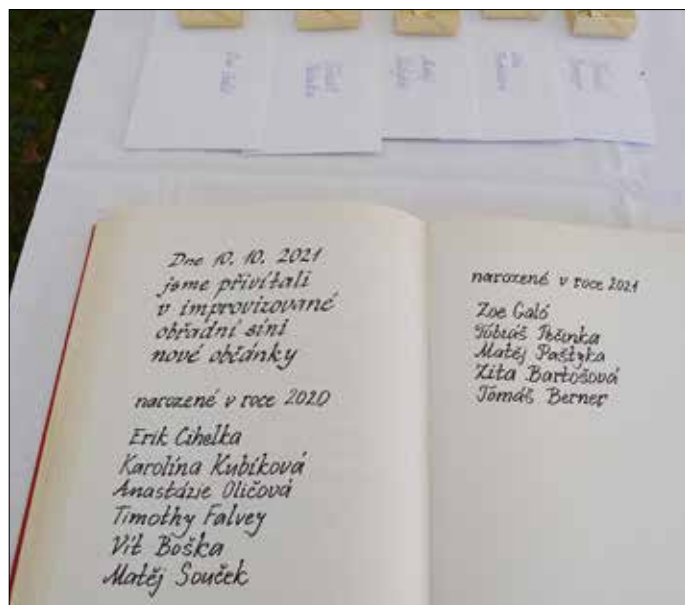 Dne 10. 10. 2021
jsme přivítali
v improvizované
obřadní síni
nové občánky
narozené v roce 2020
Erik Cihelka
Karolína Kubíková
Anastázie Oličová
Timothy Falvey
Vít Boška
Matěj Souček
narozené v roce 2021
Zoe Galó
Tobiáš Pečinka
Matěj Paštyka
Zita Bartošová
Tomáš Berner